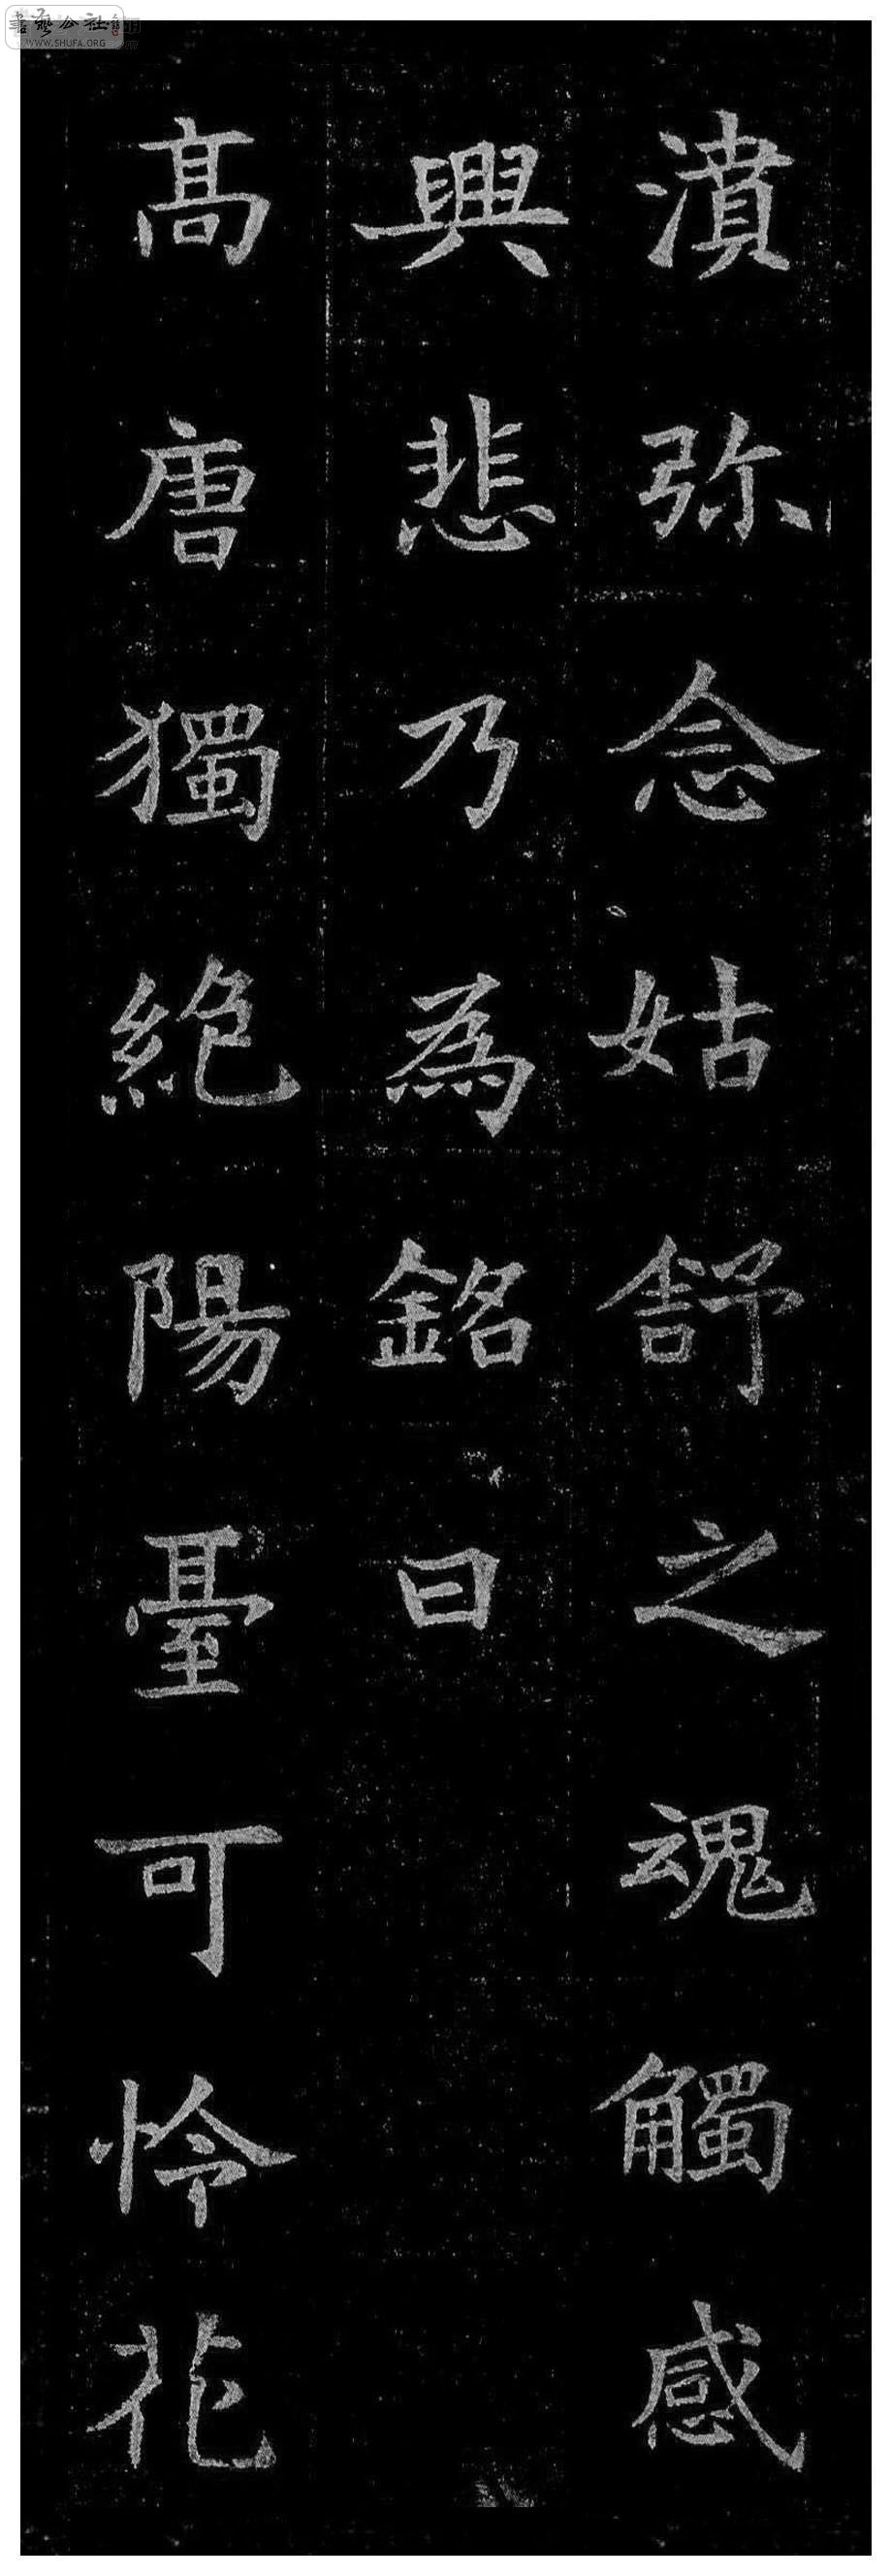 濆弥念姑舒之魂觸感
興悲乃為銘曰
高唐獨絶陽臺可怜花
書藝公社
WWW.SHUFA.ORG